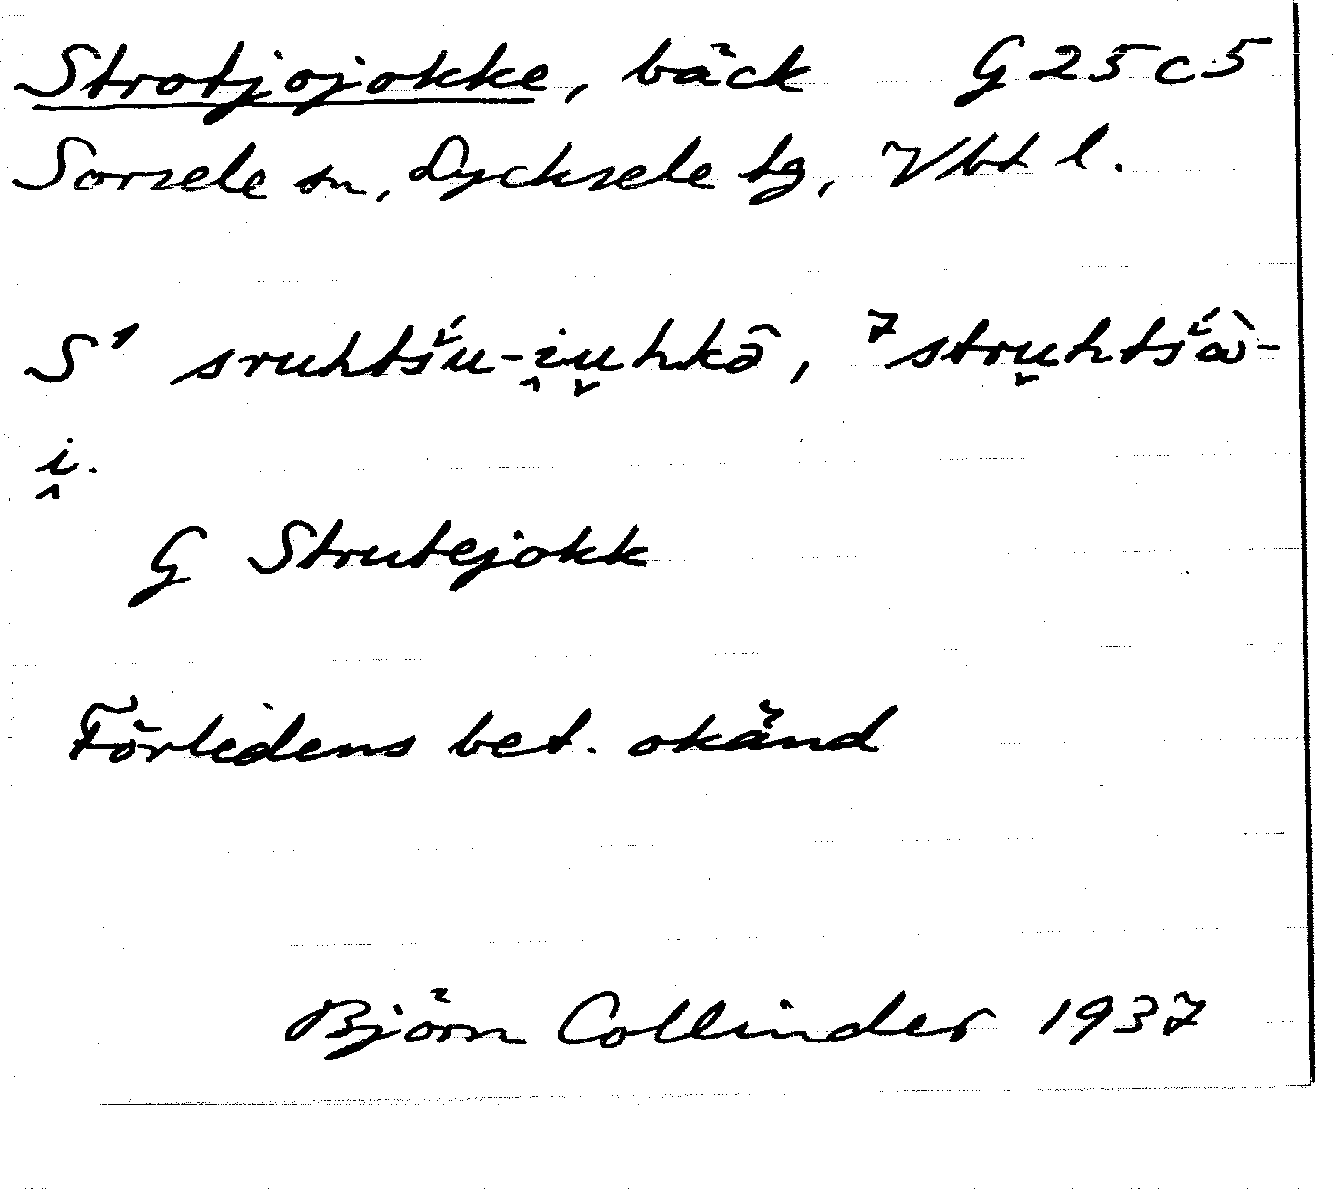 Strotjojokke, bäck G25c5
Sorsele sn, Lycksele lg, Vbt l.
S¹ sruhtśu-i̭u̬hkə̂, ⁷stru̬htśɑ̀-
i̭.
G Strutejokk
Förledens bet. okänd
Björn Collinder 1937